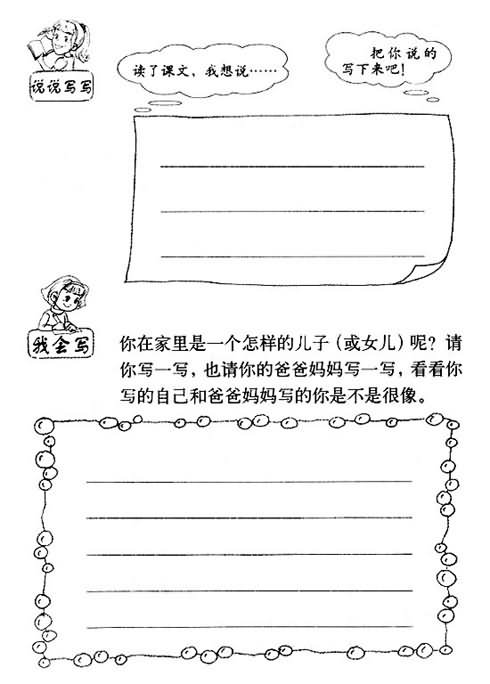 说说写写
读了课文，我想说……
把你说的
写下来吧！
我会写
你在家里是一个怎样的儿子（或女儿）呢？请
你写一写，也请你的爸爸妈妈写一写，看看你
写的自己和爸爸妈妈写的你是不是很像。